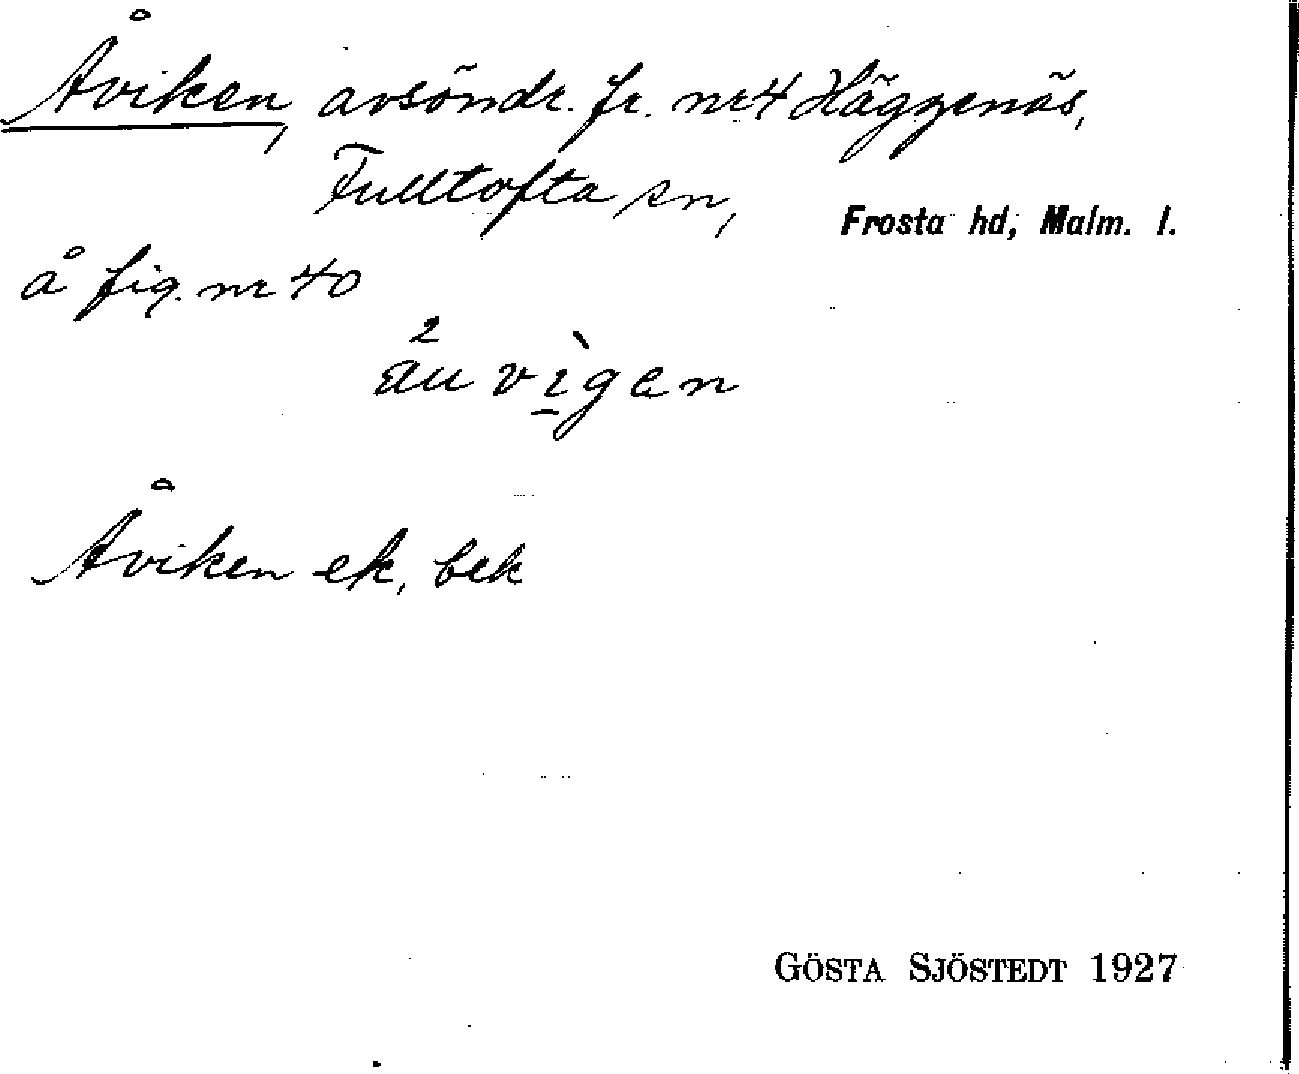 Åviken, avsöndr. fr. nr 4 Häggenäs,
Fulltofta sn, Frosta hd, Malm. l.
å fig. nr 40
äu vìgen
Åviken ek, bek
GÖSTA SJÖSTEDT 1927